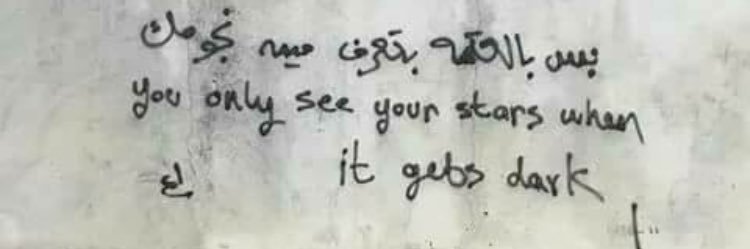 بس بالعتمه بتعرف مين نجومك
you only see your stars when
it gets dark